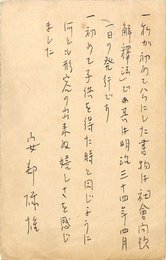 一、私が初めて公にした書物は社會問題
解釋法でゞ其は明治三十四年四月
一日の発行です
一、初めて子供を得た時と同じように
何とも形容の出来ぬ嬉しさを感じ
ました
安部磯雄